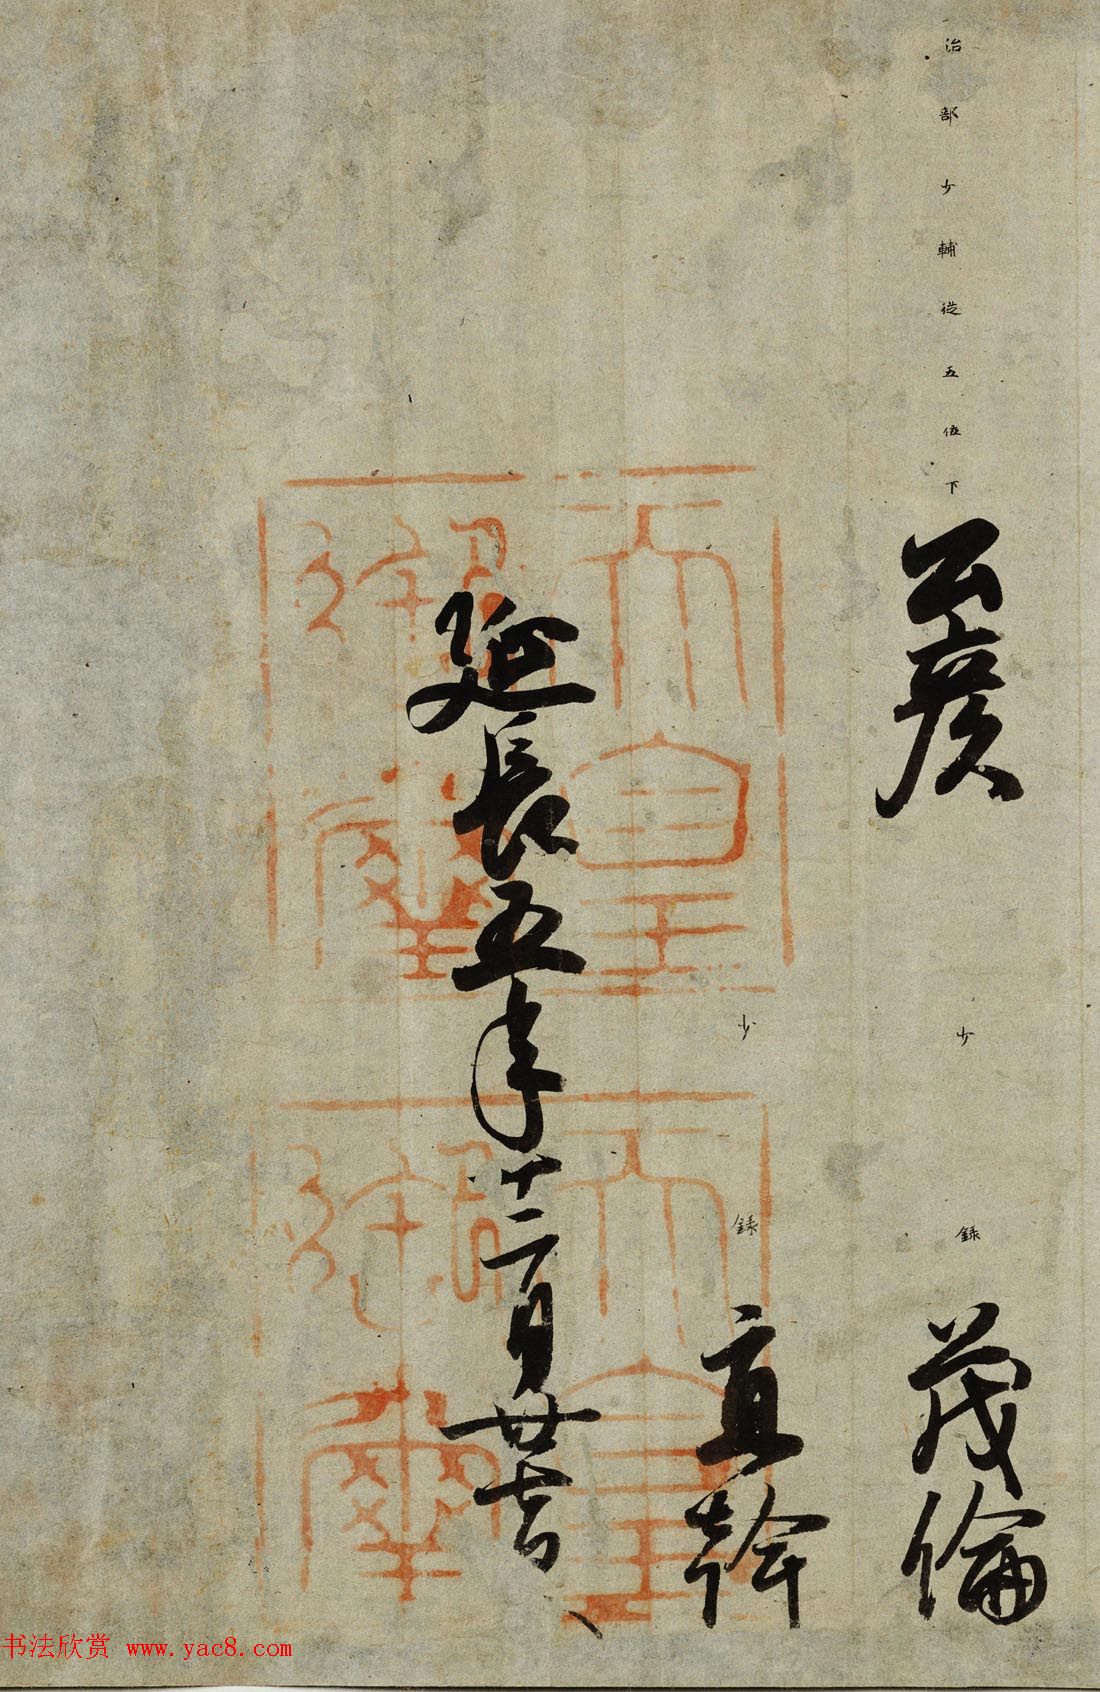 治部少輔從五位下公彦
少錄茂倫
少錄直幹
延長五年十二月廿七日
天皇
御璽
天皇
御璽
书法欣赏 www.yac8.com